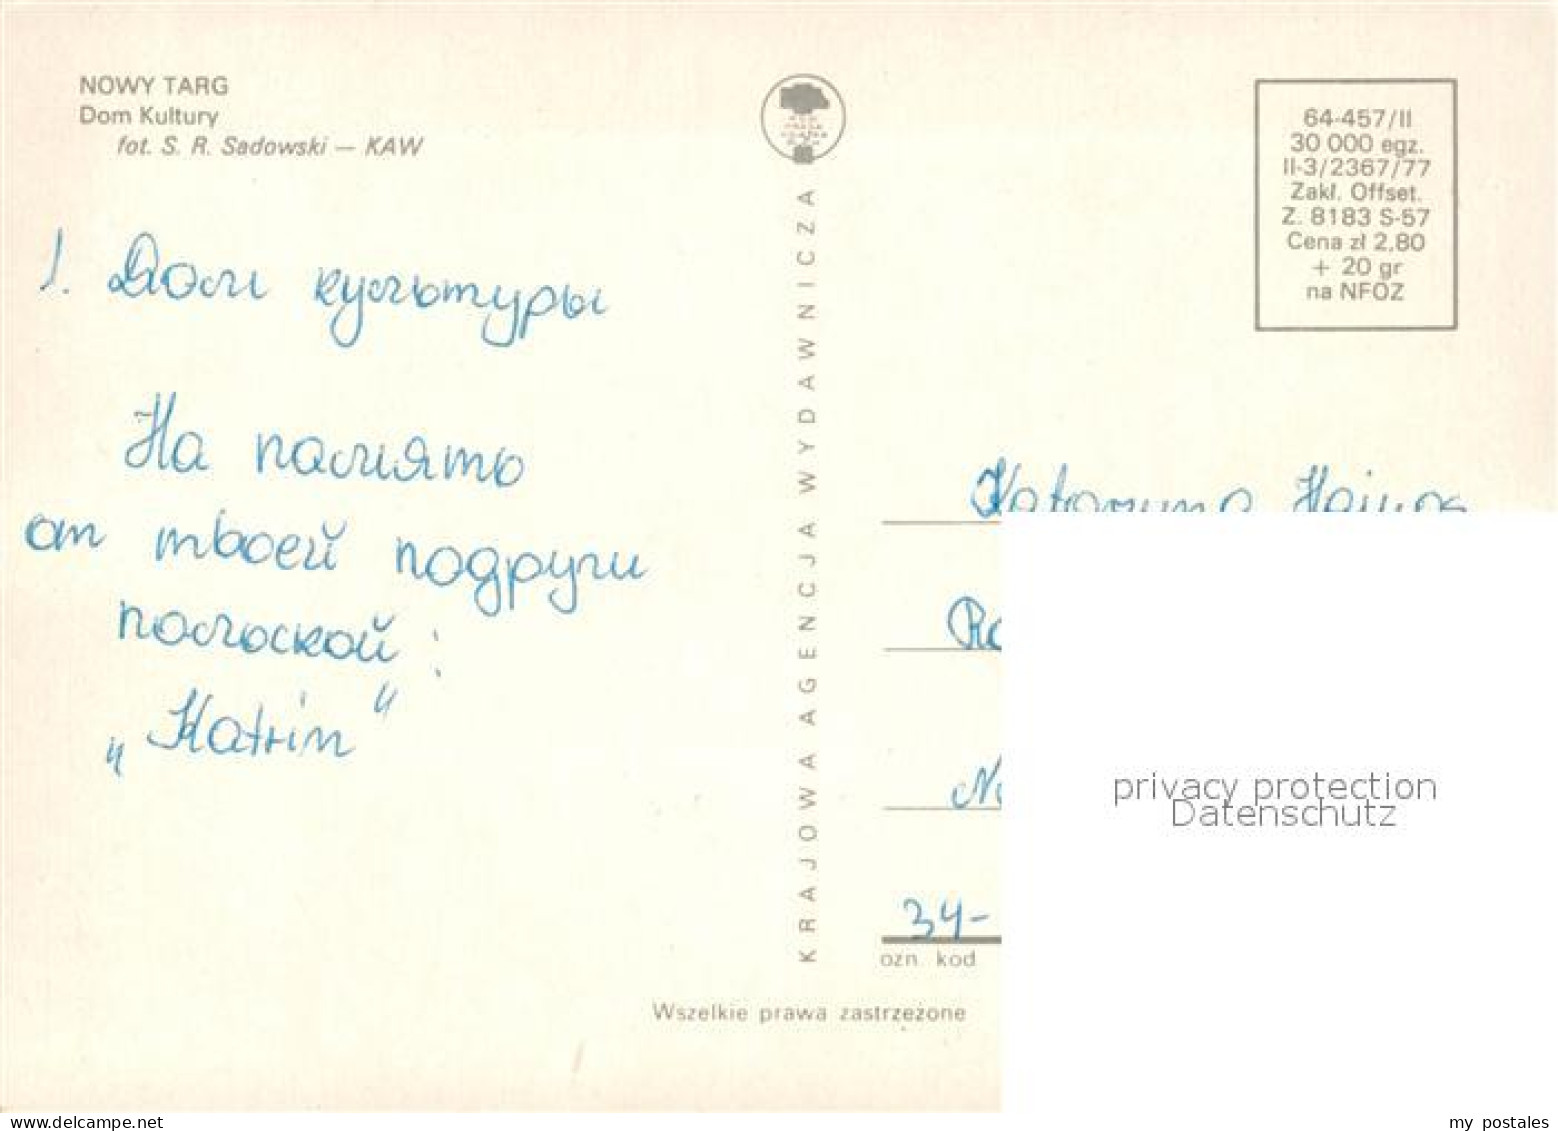 NOWY TARG
Dom Kultury
fot. S. R. Sadowski — KAW
1. Дом культуры
На память
от твоей подруги
польской:
„Katrin"
KRAJOWA AGENCJA WYDAWNICZA
64-457/II
30 000 egz.
II-3/2367/77
Zakł. Offset.
Z. 8183 S-57
Cena zł 2,80
+ 20 gr
na NFOZ
Katarzyna
34-
ozn. kod
Wszelkie prawa zastrzeżone
privacy protection
Datenschutz
www.delcampe.net
my_postales